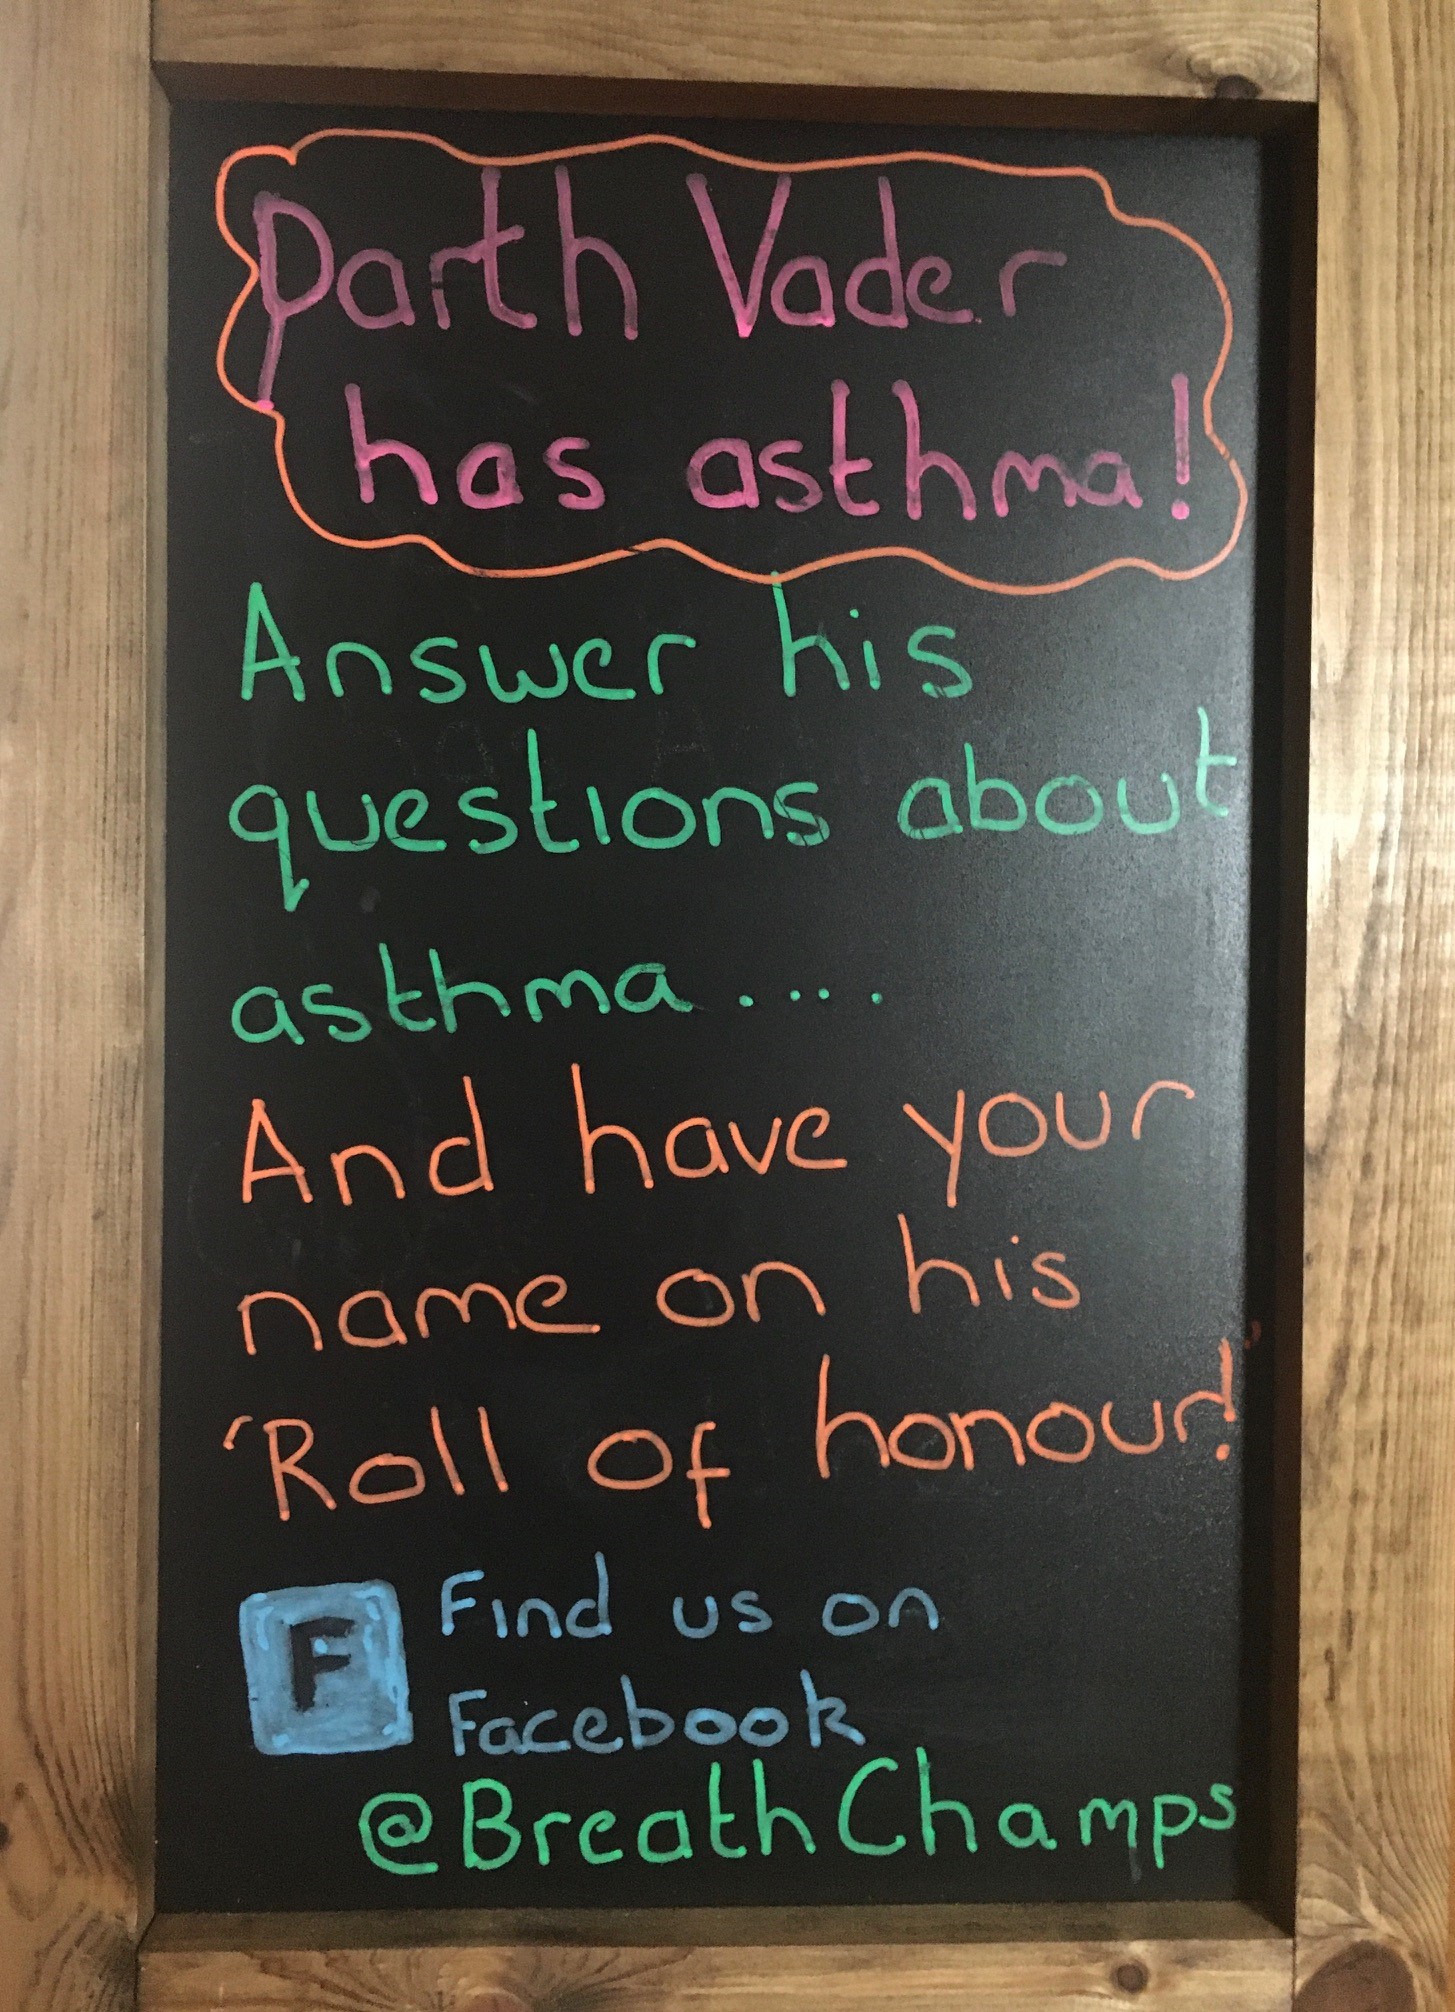 Darth Vader
has asthma!
Answer his
questions about
asthma....
And have your
name on his
'Roll of honour!'
F Find us on
Facebook
@BreathChamps